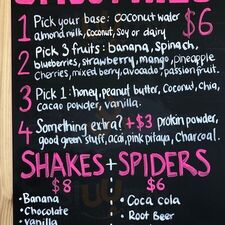 1 Pick your base: coconut water $6
almond milk, coconut, soy or dairy
2 Pick 3 fruits: banana, spinach,
blueberries, strawberry, mango, pineapple
cherries, mixed berry, avocado, passionfruit.
3 Pick 1: honey, peanut butter, coconut, chia,
cacao powder, vanilla.
4 Something extra? +$3 protein powder,
good green stuff, acai, pink pitaya, charcoal.
SHAKES + SPIDERS
$8 $6
• Banana • Coca cola
• Chocolate • Root Beer
• Vanilla